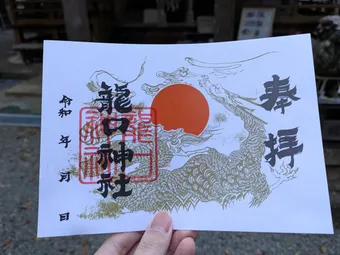 奉拝
龍口神社
令和 年 月 日